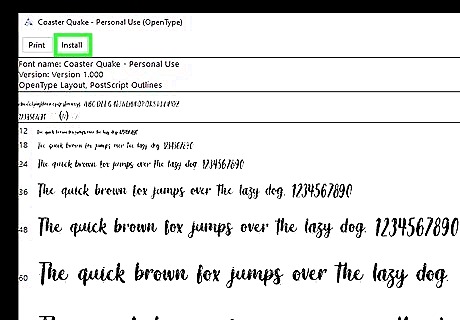 Coaster Quake - Personal Use (OpenType)
Print Install
Font name: Coaster Quake - Personal Use
Version: Version 1.000
OpenType Layout, PostScript Outlines
12 The quick brown fox jumps over the lazy dog. 1234567890
18 The quick brown fox jumps over the lazy dog. 1234567890
24 The quick brown fox jumps over the lazy dog. 1234567890
36 The quick brown fox jumps over the lazy dog. 1234567890
48 The quick brown fox jumps over the lazy dog. 1234567890
60 The quick brown fox jumps over the lazy dog.